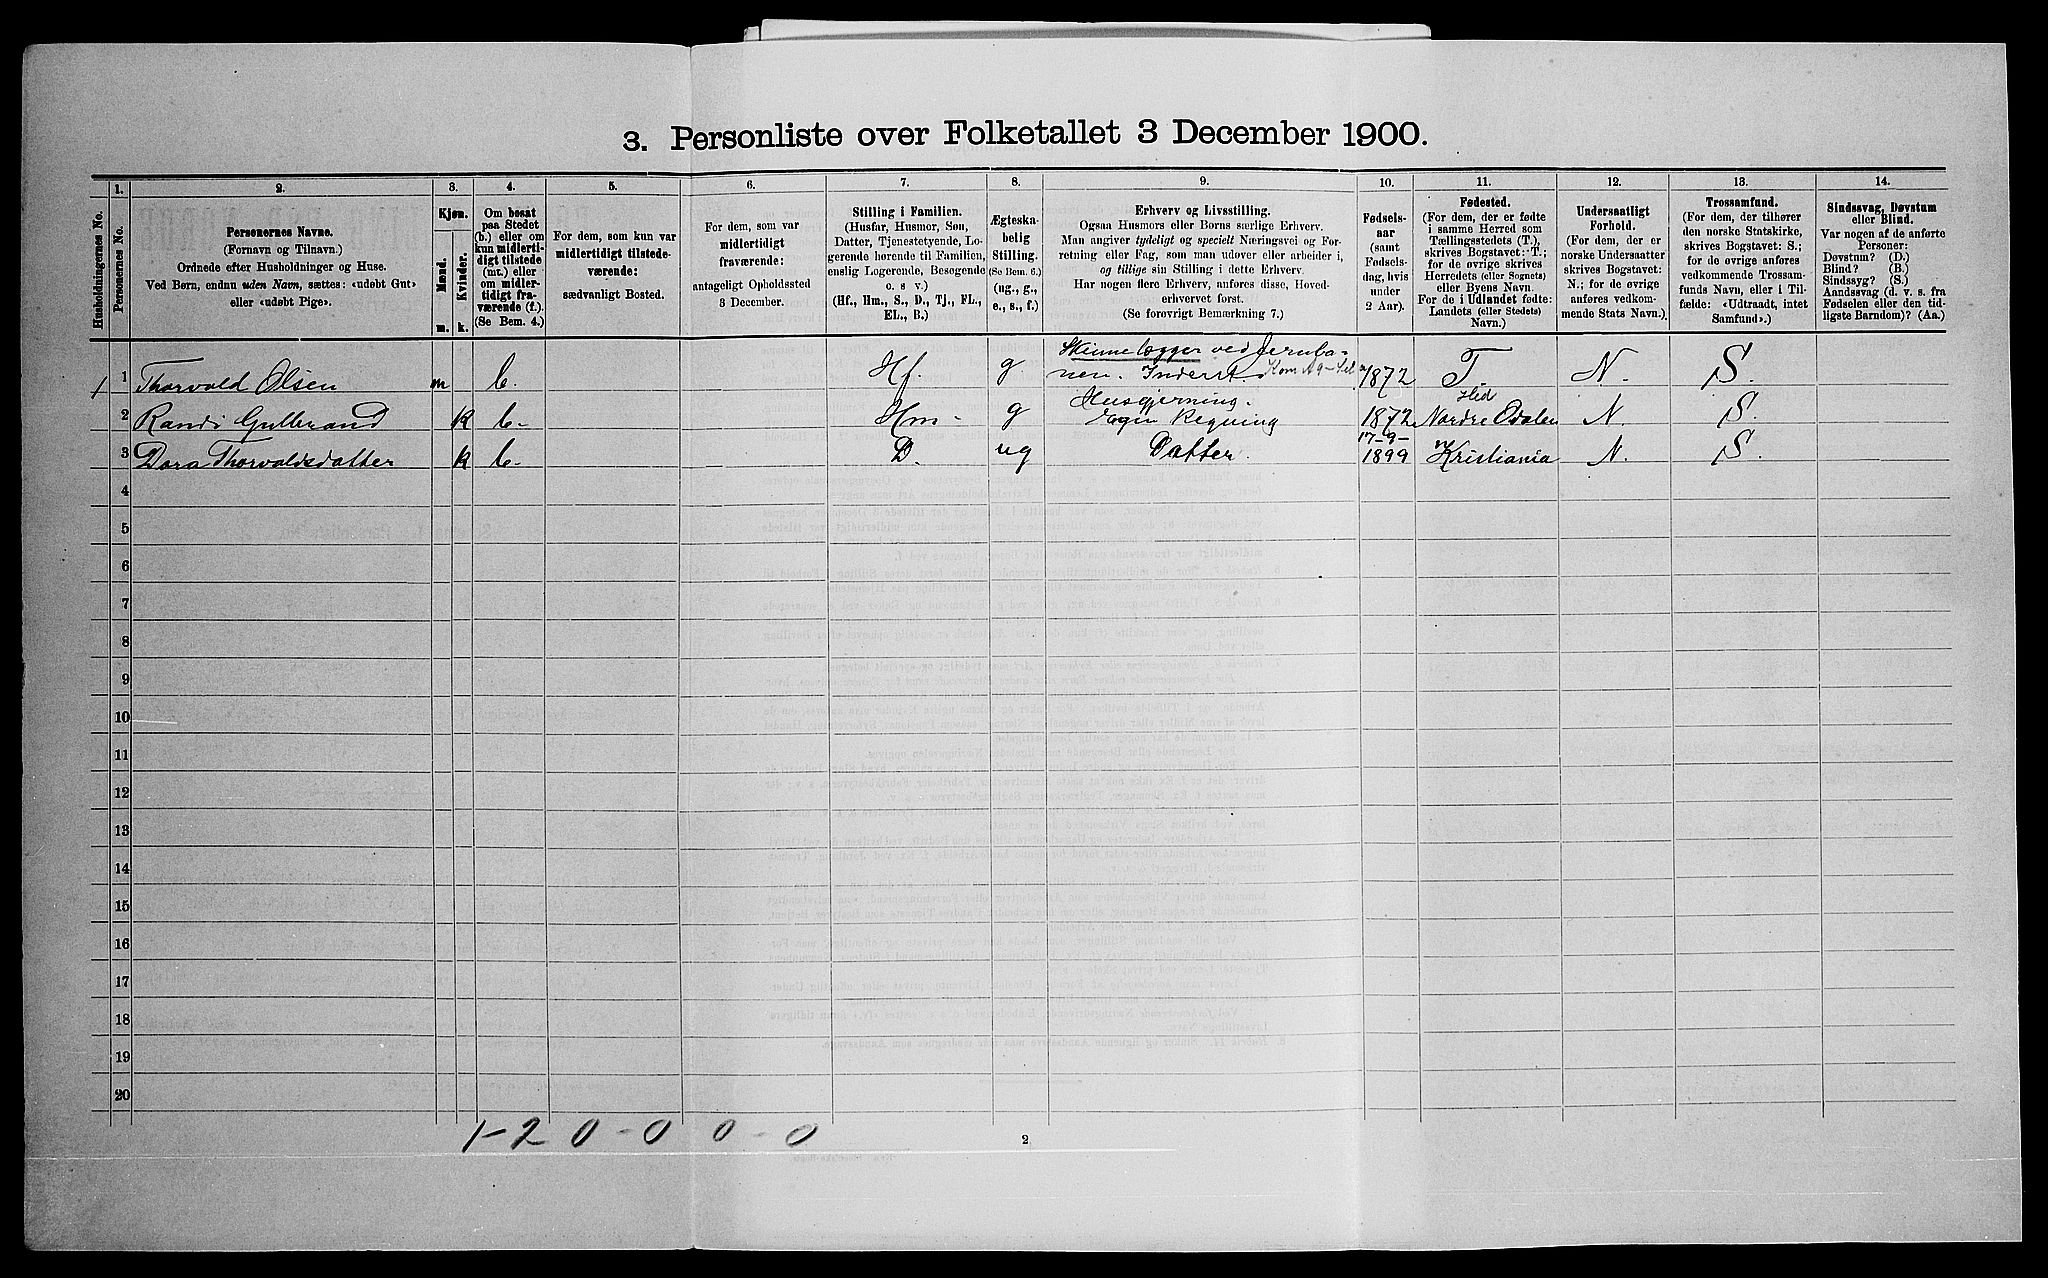 3. Personliste over Folketallet 3 December 1900.
Husholdningernes No.
1.
Personernes No.
2.
Personernes Navne.
(Fornavn og Tilnavn.)
Ordnede efter Husholdninger og Huse.
Ved Børn, endnu uden Navn, sættes: «udøbt Gut»
eller «udøbt Pige».
3.
Kjøn.
Mænd.
Kvinder.
m.
k.
4.
Om bosat
paa Stedet
(b.) eller om
kun midlerti-
digt tilstede
(mt.) eller
om midler-
tidigt fra-
værende (f.).
(Se Bem. 4.)
5.
For dem, som kun var
midlertidigt tilstede-
værende:
sædvanligt Bosted.
6.
For dem, som var
midlertidigt
fraværende:
antageligt Opholdssted
3 December.
7.
Stilling i Familien.
(Husfar, Husmor, Søn,
Datter, Tjenestetyende, Lo-
gerende hørende til Familien,
enslig Logerende, Besøgende
o. s v.)
(Hf., Hm., S., D., Tj., FL.,
EL., B.)
8.
Ægteska-
belig
Stilling.
(Se Bem. 6.)
(ug., g.,
e., s., f.)
9.
Erhverv og Livsstilling.
Ogsaa Husmors eller Børns særlige Erhverv.
Man angiver tydeligt og specielt Næringsvei og For-
retning eller Fag, som man udøver eller arbeider i,
og tillige sin Stilling i dette Erhverv.
Har nogen flere Erhverv, anføres disse, Hoved-
erhvervet først.
(Se forøvrigt Bemærkning 7.)
10.
Fødsels-
aar
(samt
Fødsels-
dag, hvis
under
2 Aar).
11.
Fødested.
(For dem, der er fødte
i samme Herred som
Tællingsstedets (T.),
skrives Bogstavet: T.;
for de øvrige skrives
Herredets (eller Sognets)
eller Byens Navn.
For de i Udlandet fødte:
Landets (eller Stedets)
Navn.)
12.
Undersaatligt
Forhold.
(For dem, der er
norske Undersaatter
skrives Bogstavet:
N.; for de øvrige
anføres vedkom-
mende Stats Navn.)
13.
Trossamfund.
(For dem, der tilhører
den norske Statskirke,
skrives Bogstavet: S.;
for de øvrige anføres
vedkommende Trossam-
funds Navn, eller i Til-
fælde: «Udtraadt, intet
Samfund».)
14.
Sindssvag, Døvstum
eller Blind.
Var nogen af de anførte
Personer:
Døvstum? (D.)
Blind? (B.)
Sindssyg? (S.)
Aandssvag (d. v. s. fra
Fødselen eller den tid-
ligste Barndom)? (Aa.)
1 1 Thorvald Olsen m b. Hf. g Skinnelægger ved Jernba-
nen. Inderst. 1872 T. N. S.
2 Randi Gulbrand k b. Hm g Husgjerning.
Egen Regning 1872 Hed
Nordre Odalen N. S.
3 Dora Thorvaldsdatter k b. D. ug Datter. 17-9-
1899 Kristiania N. S.
4
5
6
7
8
9
10
11
12
13
14
15
16
17
18
19
20
1-2 0-0 0-0
2